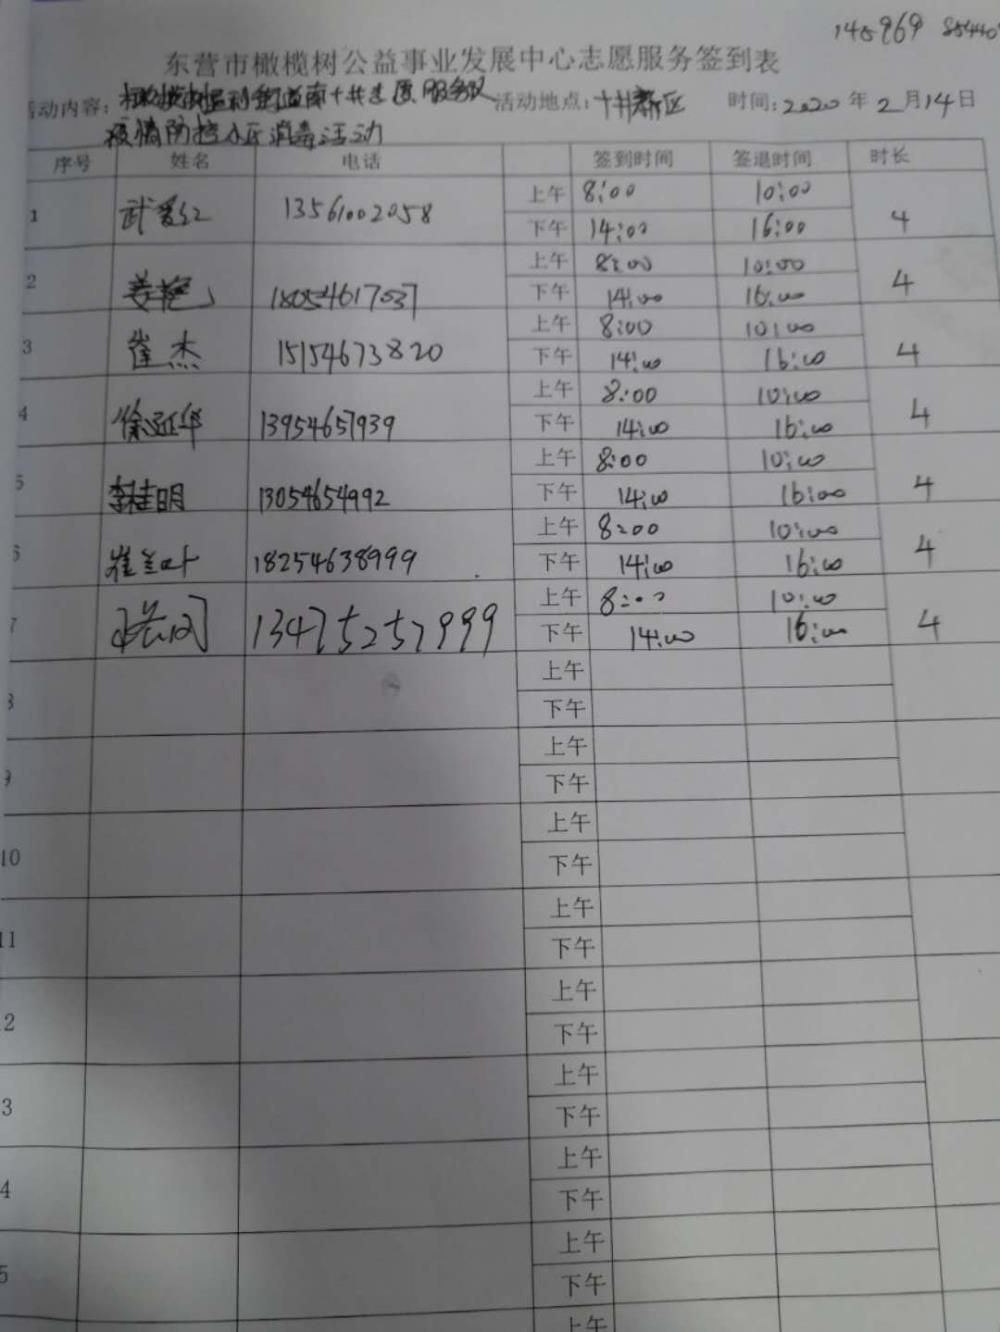 145969 85440
东营市橄榄树公益事业发展中心志愿服务签到表
活动内容: 服务队 活动地点: 十村新区 时间: 2020 年 2 月 14 日
疫情防控小区消毒活动
序号 姓名 电话 签到时间 签退时间 时长
1 武爱红 13561002058 上午 8:00 10:00 4
下午 14:00 16:00
2 上午 8:00 10:00 4
姜艳 18054617037 下午 14:00 16:00
3 崔杰 15154673820 上午 8:00 10:00 4
下午 14:00 16:00
4 徐延华 13954657939 上午 8:00 10:00 4
下午 14:00 16:00
5 李桂明 13054654992 上午 8:00 10:00 4
下午 14:00 16:00
6 崔兰叶 18254638999 上午 8:00 10:00 4
下午 14:00 16:00
7 13475257999 上午 8:00 10:00 4
下午 14:00 16:00
8 上午
下午
9 上午
下午
10 上午
下午
11 上午
下午
2 上午
下午
3 上午
下午
4 上午
下午
5 上午
下午
上午